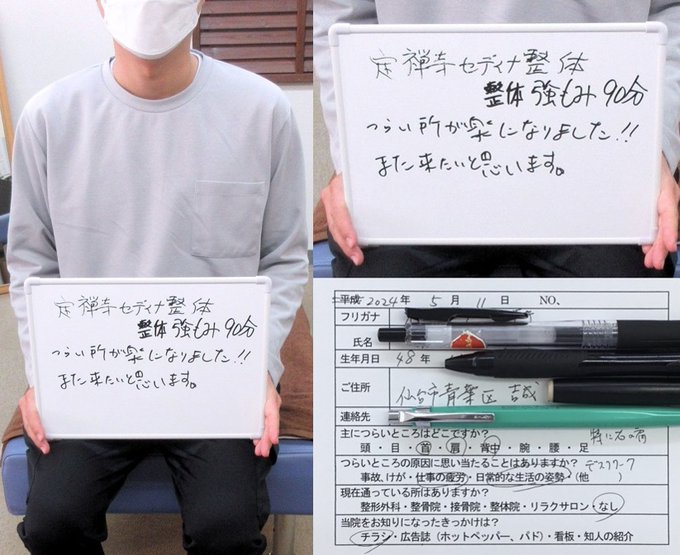 定禅寺セディナ整体
整体 強もみ 90分
つらい所が楽になりました!!
また来たいと思います。
定禅寺セディナ整体
整体 強もみ 90分
つらい所が楽になりました!!
また来たいと思います。
平成 2024年 5月 11日 NO、
フリガナ
氏名
生年月日 48年
ご住所 仙台市青葉区 吉成
連絡先
主につらいところはどこですか? 特に右の肩
頭・目・首・肩・背中・腕・腰・足
つらいところの原因に思い当たることはありますか? デスクワーク
事故、けが・仕事の疲労・日常的な生活の姿勢・(他 )
現在通っている所はありますか?
整形外科・整骨院・接骨院・整体院・リラクサロン・なし
当院をお知りになったきっかけは?
チラシ・広告誌(ホットペッパー、パド)・看板・知人の紹介